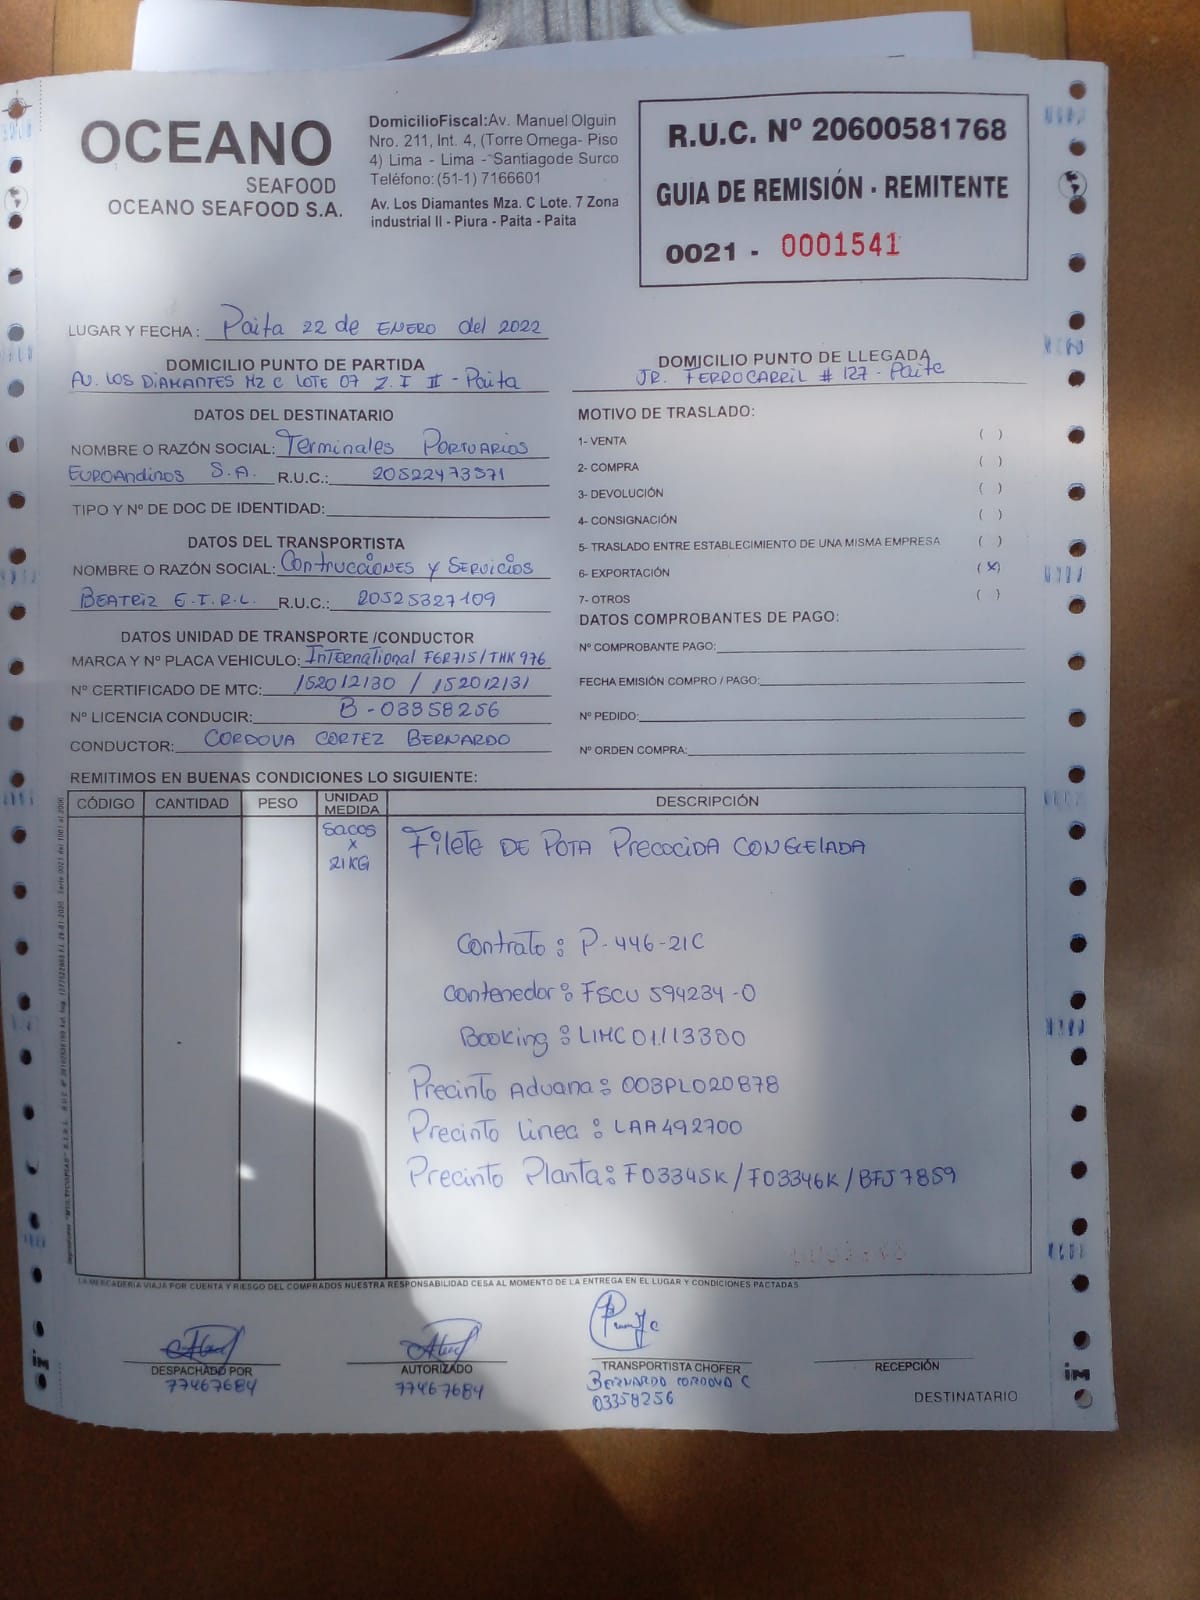 OCEANO
SEAFOOD
OCEANO SEAFOOD S.A.
DomicilioFiscal:Av. Manuel Olguin
Nro. 211, Int. 4, (Torre Omega- Piso
4) Lima - Lima - Santiagode Surco
Teléfono:(51-1) 7166601
Av. Los Diamantes Mza. C Lote. 7 Zona
industrial II - Piura - Paita - Paita
R.U.C. Nº 20600581768
GUIA DE REMISIÓN - REMITENTE
0021 - 0001541
LUGAR Y FECHA : Paita 22 de ENERO del 2022
DOMICILIO PUNTO DE PARTIDA
AV. LOS DIAMANTES MZ C LOTE 07 Z.I II - Paita
DATOS DEL DESTINATARIO
NOMBRE O RAZÓN SOCIAL: Terminales PORTUARIOS
EUROAndinos S.A. R.U.C.: 20522473571
TIPO Y Nº DE DOC DE IDENTIDAD:
DATOS DEL TRANSPORTISTA
NOMBRE O RAZÓN SOCIAL: Contrucciones y Servicios
BEATRIZ E.I.R.L. R.U.C.: 20525327109
DATOS UNIDAD DE TRANSPORTE /CONDUCTOR
MARCA Y Nº PLACA VEHICULO: International F6R715/THK 976
Nº CERTIFICADO DE MTC: 152012130 / 152012131
Nº LICENCIA CONDUCIR: B-03358256
CONDUCTOR: CORDOVA CORTEZ BERNARDO
DOMICILIO PUNTO DE LLEGADA
JR. FERROCARRIL # 127 - Paita
MOTIVO DE TRASLADO:
1- VENTA ( )
2- COMPRA ( )
3- DEVOLUCIÓN ( )
4- CONSIGNACIÓN ( )
5- TRASLADO ENTRE ESTABLECIMIENTO DE UNA MISMA EMPRESA ( )
6- EXPORTACIÓN (X)
7- OTROS ( )
DATOS COMPROBANTES DE PAGO:
Nº COMPROBANTE PAGO:
FECHA EMISIÓN COMPRO / PAGO:
Nº PEDIDO:
Nº ORDEN COMPRA:
REMITIMOS EN BUENAS CONDICIONES LO SIGUIENTE:
CÓDIGO CANTIDAD PESO UNIDAD MEDIDA DESCRIPCIÓN
Sacos x 21KG Filete DE POTA PRECOCIDA CONGELADA
Contrato : P-446-21C
Contenedor : FSCU 594234-0
Booking : LIMC01113300
Precinto Aduana : 003PL020878
Precinto Linea : LAA492700
Precinto Planta: F03345K / F03346K / BFJ7859
LA MERCADERÍA VIAJA POR CUENTA Y RIESGO DEL COMPRADOS NUESTRA RESPONSABILIDAD CESA AL MOMENTO DE LA ENTREGA EN EL LUGAR Y CONDICIONES PACTADAS
DESPACHADO POR
77467684
AUTORIZADO
77467684
TRANSPORTISTA CHOFER
BERNARDO CORDOVA C
03358256
RECEPCIÓN
DESTINATARIO